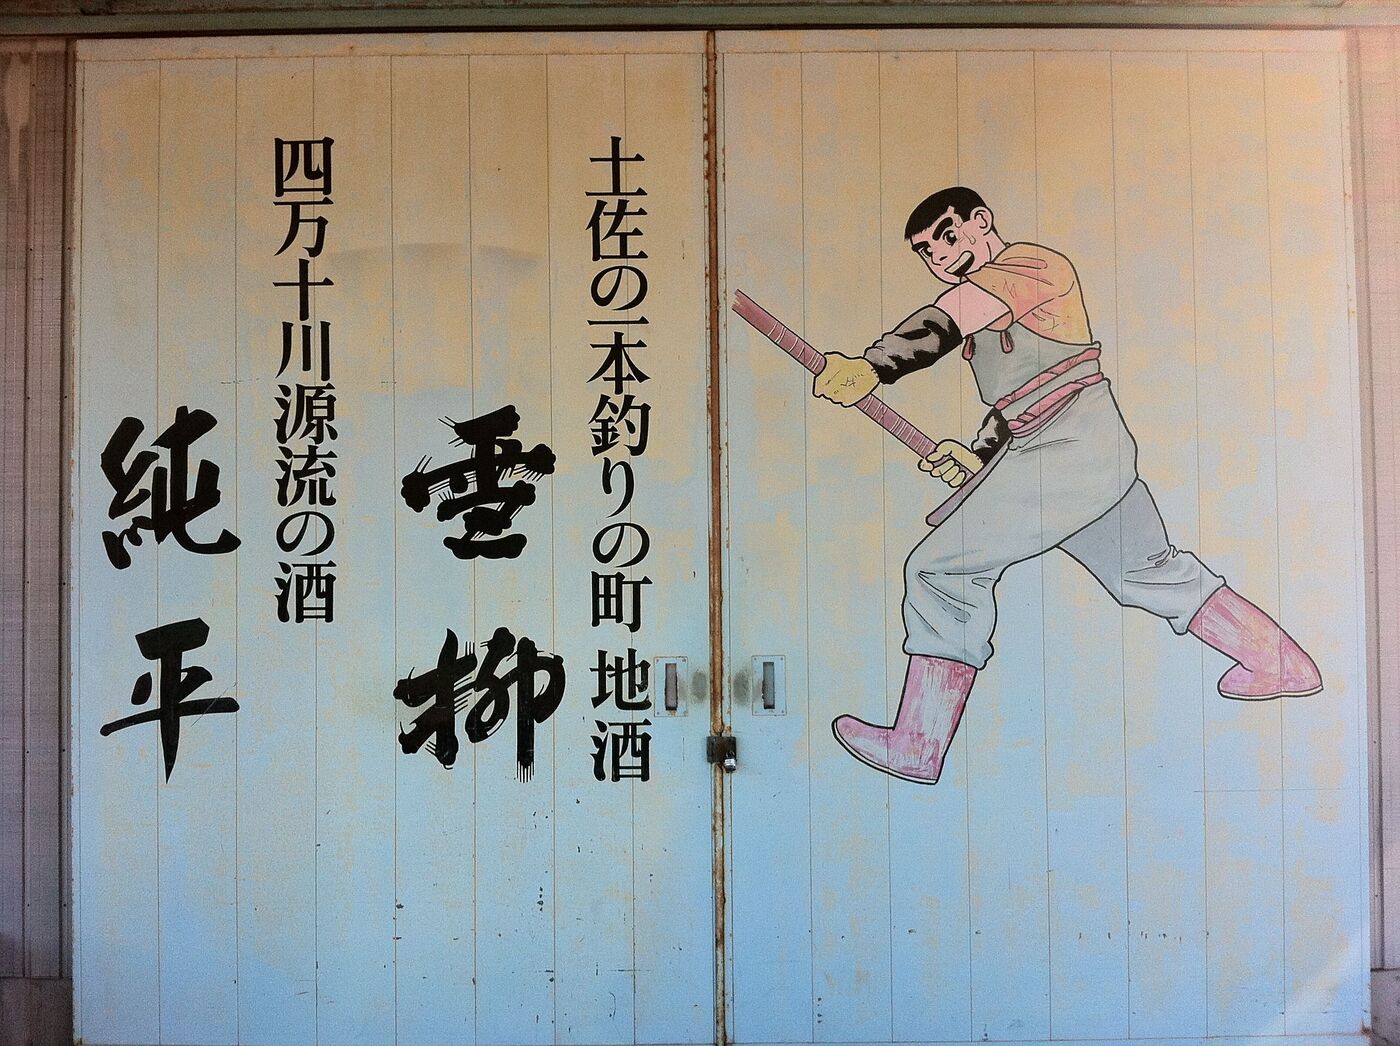 土佐の一本釣りの町 地酒
雪柳
四万十川源流の酒
純平